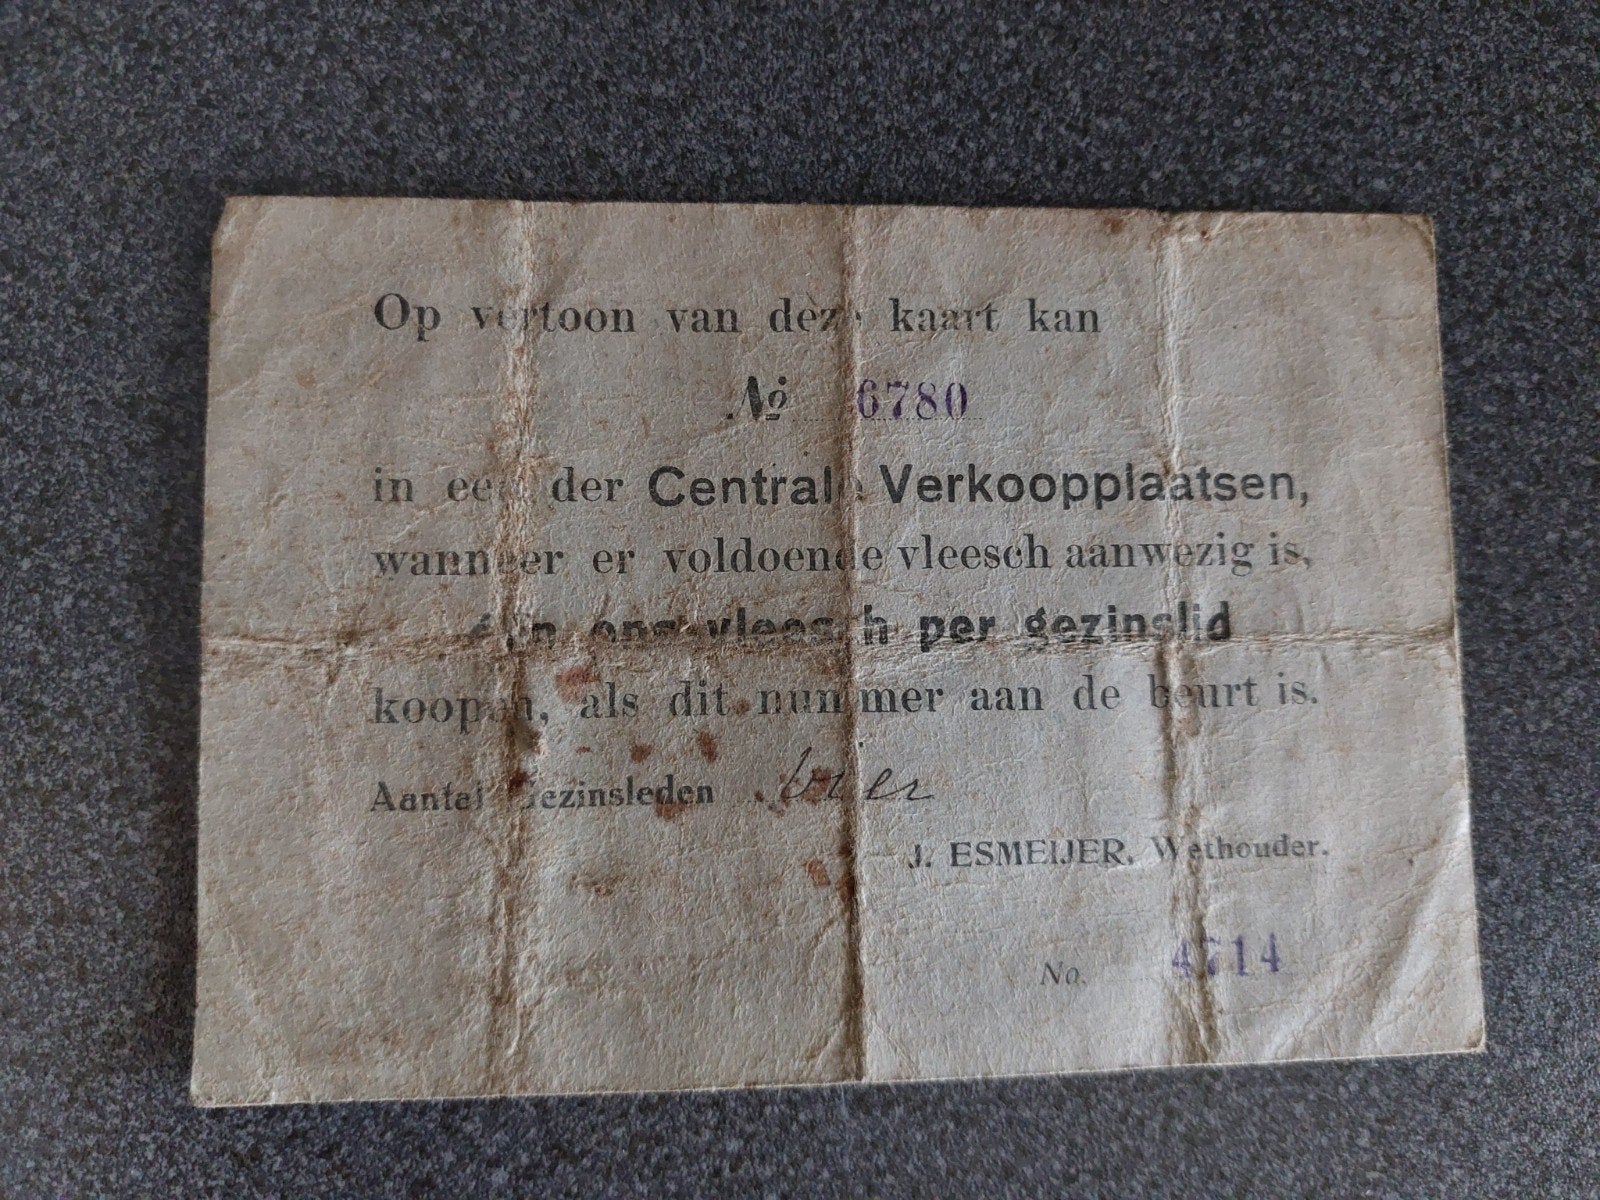 Op vertoon van deze kaart kan
No 6780
in een der Centrale Verkoopplaatsen,
wanneer er voldoende vleesch aanwezig is,
één ons vleesch per gezinslid
koopen, als dit nummer aan de beurt is.
Aantal Gezinsleden vier
J. ESMEIJER, Wethouder.
No. 4714